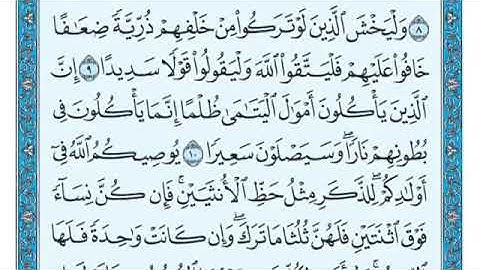 ٨ وَلْيَخْشَ الَّذِينَ لَوْ تَرَكُوا مِنْ خَلْفِهِمْ ذُرِّيَّةً ضِعَافًا
خَافُوا عَلَيْهِمْ فَلْيَتَّقُوا اللَّهَ وَلْيَقُولُوا قَوْلًا سَدِيدًا ٩ إِنَّ
الَّذِينَ يَأْكُلُونَ أَمْوَالَ الْيَتَامَى ظُلْمًا إِنَّمَا يَأْكُلُونَ فِي
بُطُونِهِمْ نَارًا ۖ وَسَيَصْلَوْنَ سَعِيرًا ١٠ يُوصِيكُمُ اللَّهُ فِي
أَوْلَادِكُمْ ۖ لِلذَّكَرِ مِثْلُ حَظِّ الْأُنثَيَيْنِ ۚ فَإِن كُنَّ نِسَاءً
فَوْقَ اثْنَتَيْنِ فَلَهُنَّ ثُلُثَا مَا تَرَكَ ۖ وَإِن كَانَتْ وَاحِدَةً فَلَهَا